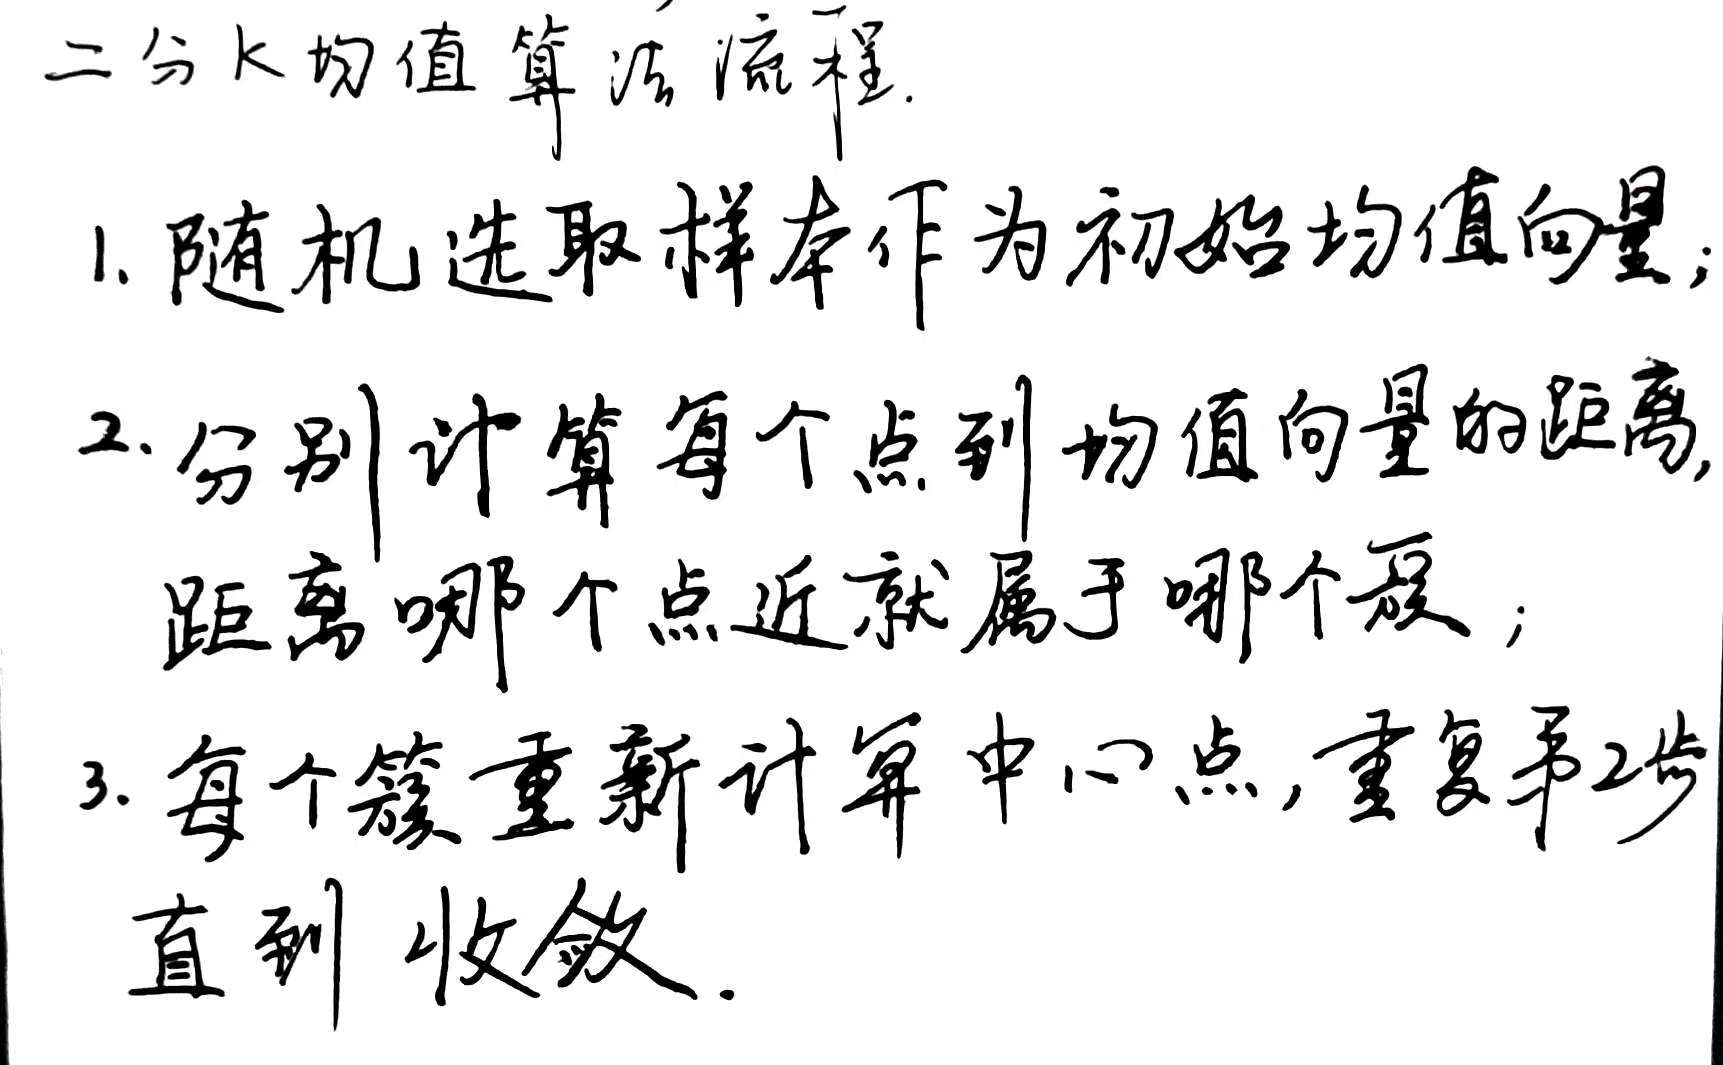 二分K均值算法流程.
1. 随机选取样本作为初始均值向量;
2. 分别计算每个点到均值向量的距离,
距离哪个点近就属于哪个簇;
3. 每个簇重新计算中心点,重复第2步
直到收敛.